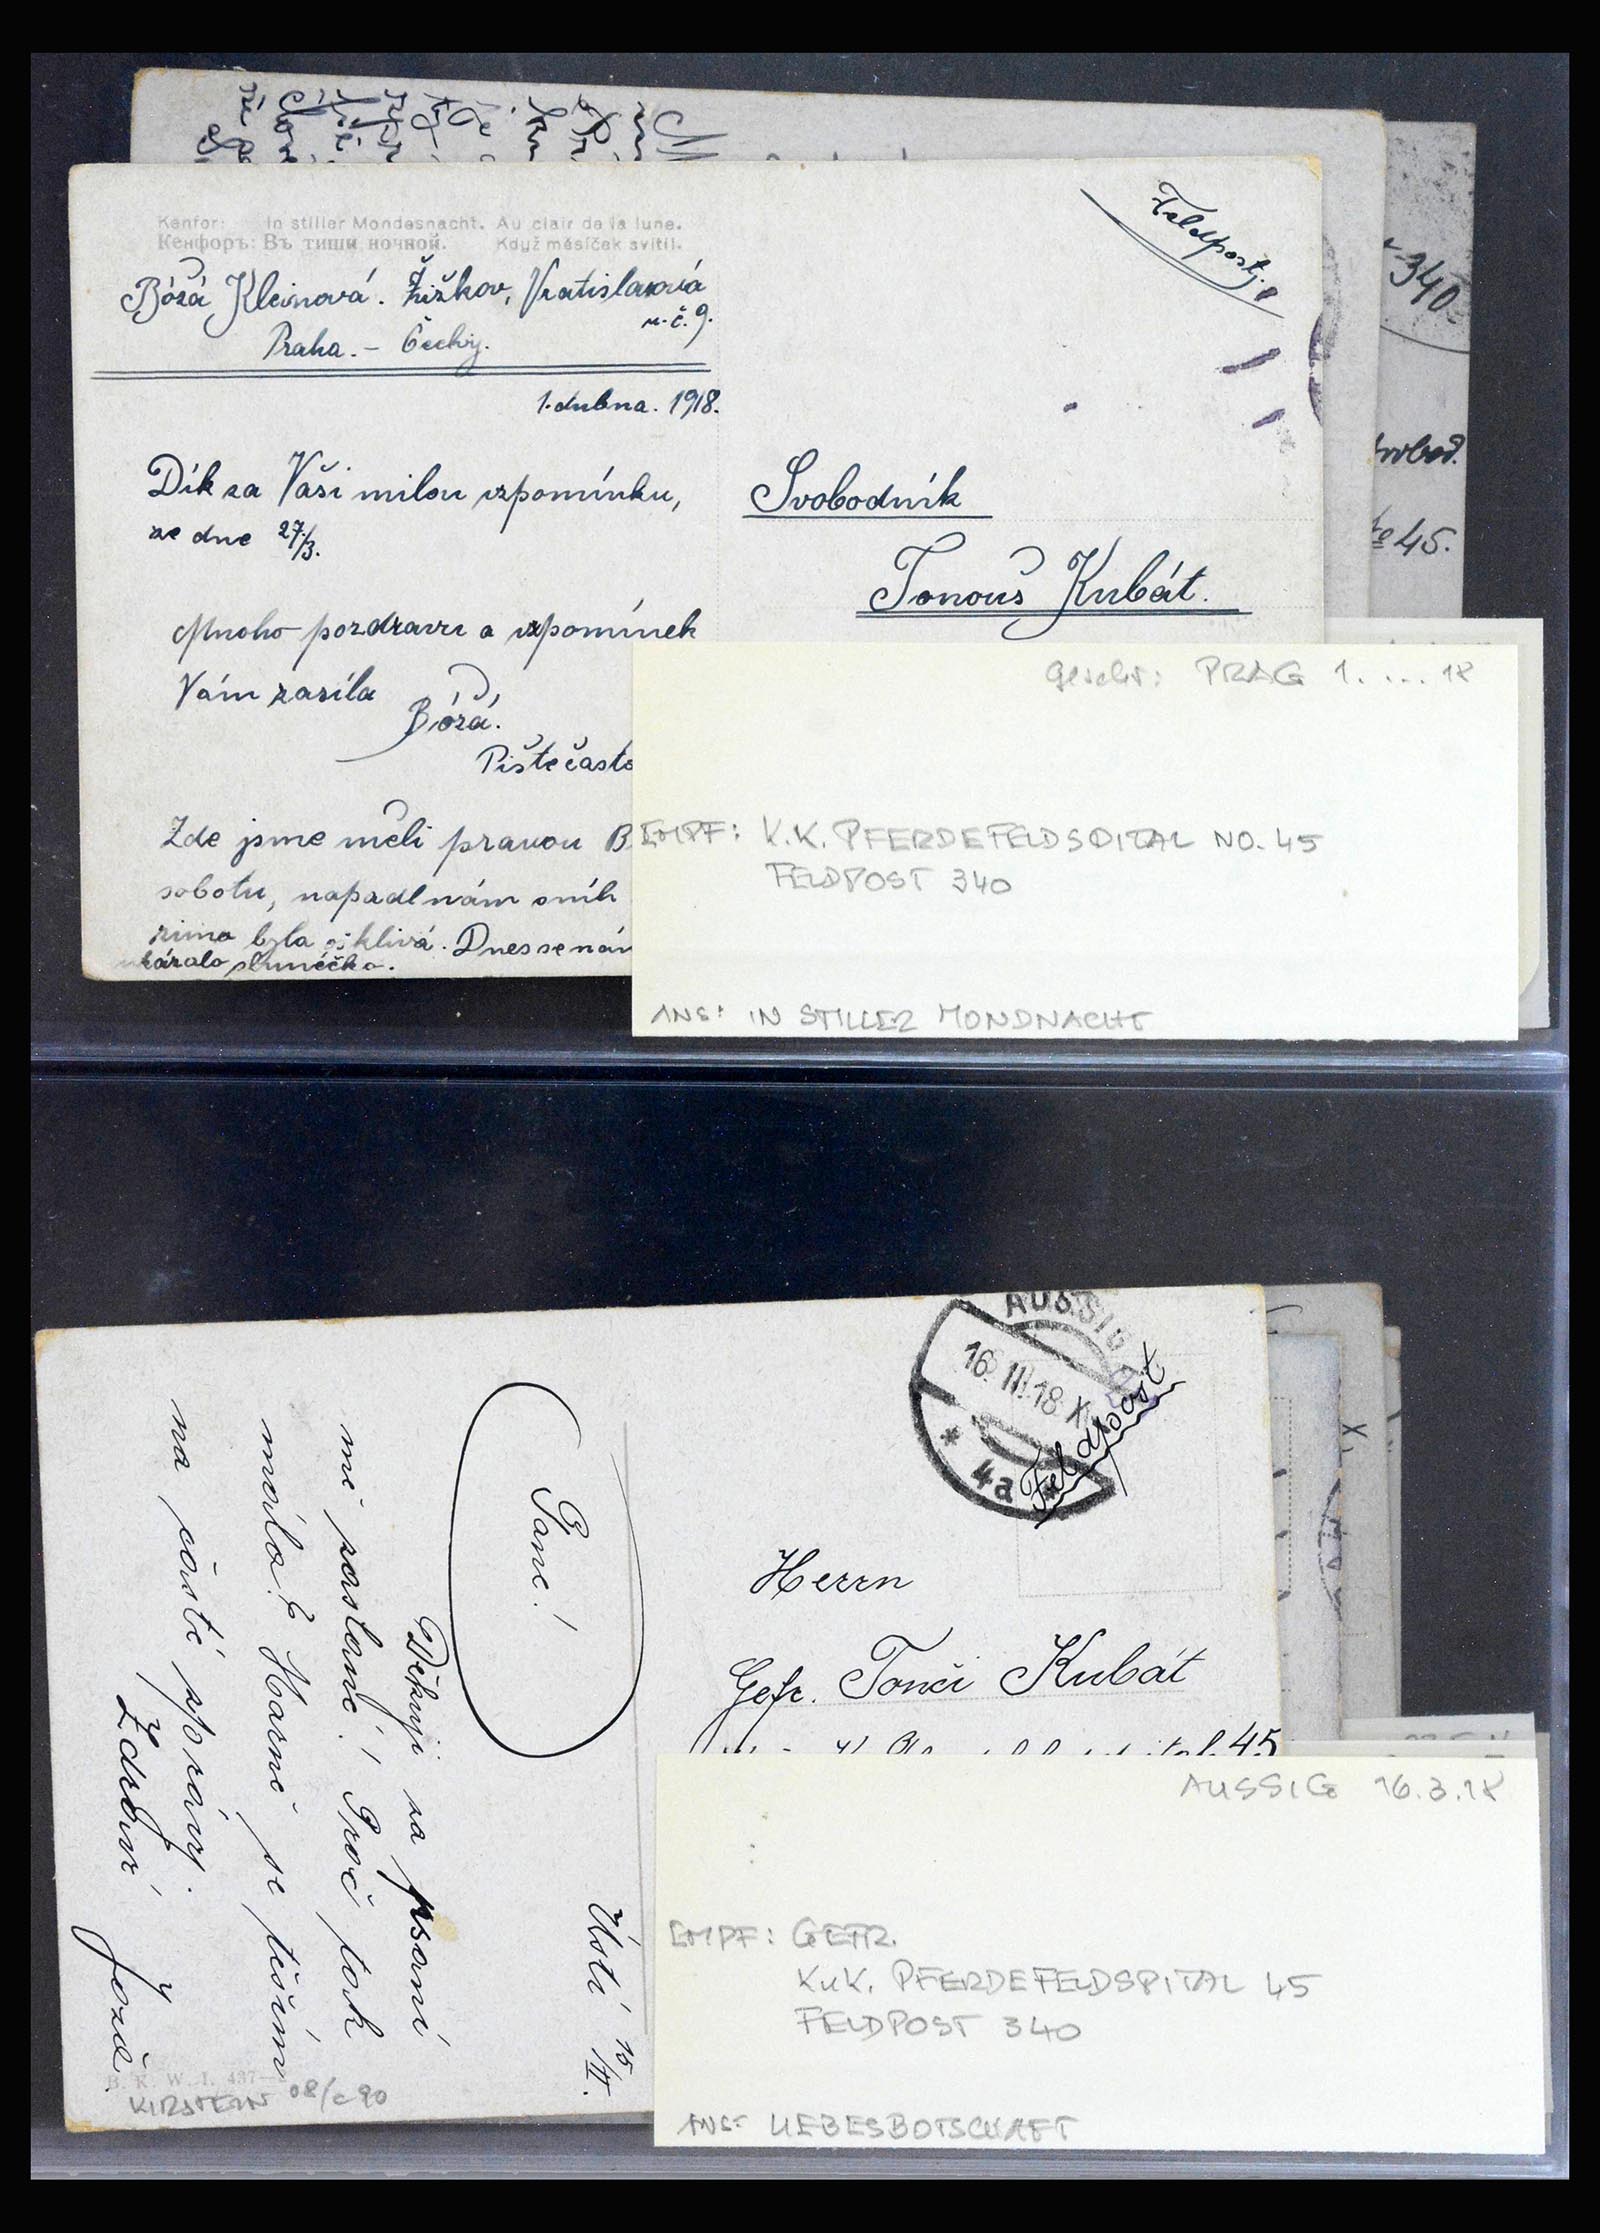 -340-
Kenfor: In stiller Mondesnacht. Au clair de la lune.
Кенфоръ: Въ тиши ночной. Když měsíček svítil.
Feldpost.
Bóžá Kleinová. Žižkov, Vratislavová
n. č. 9.
Praha. – Čechy.
1. dubna. 1918.
Dík za Vaši milou vzpomínku,
ze dne 27/3.
Mnoho pozdravů a vzpomínek
Vám zasílá
Bóžá.
Pište často
Zde jsme měli pravou B
sobotu, napadl nám sníh
zima byla ošklivá. Dnes se nám
ukázalo sluníčko.
Svobodník
Tonouš Kubát.
45.
Geschr: PRAG 1. ... 18
EMPF: K.K. PFERDEFELDSPITAL NO. 45
FELDPOST 340
ANS: IN STILLER MONDNACHT
AUSSIG
16. III. 18 X
* 4a *
Feldpost
Herrn
Gefr. Tonči Kubát
45
Ústí 15/III.
Pane!
Děkuji za psaní
mě poslané! Proč tak
málo? Hasně se těším
na časté zprávy.
Zdraví
Joža.
B. K. W. I. 437–
KIRSTEIN 08/c90
AUSSIG 16.3.18
EMPF: GEFR.
KuK. PFERDEFELDSPITAL 45
FELDPOST 340
ANS: LIEBESBOTSCHAFT